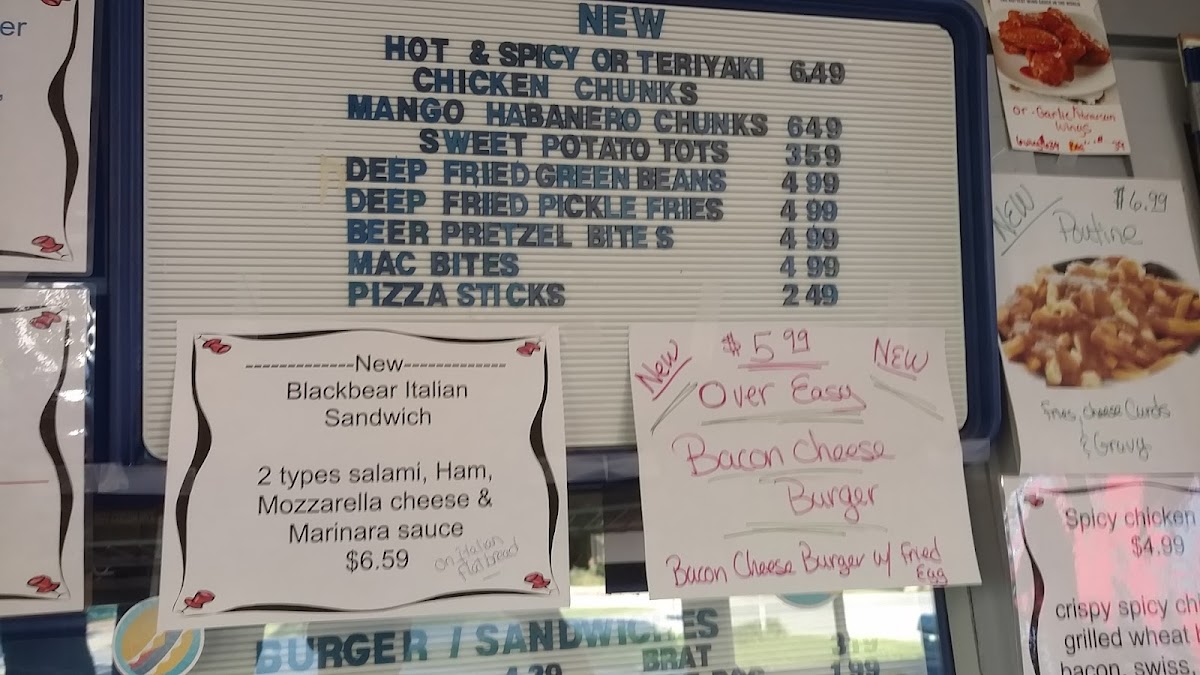 er
NEW
HOT & SPICY OR TERIYAKI 6.49
CHICKEN CHUNKS
MANGO HABANERO CHUNKS 649
SWEET POTATO TOTS 359
DEEP FRIED GREEN BEANS 4 99
DEEP FRIED PICKLE FRIES 4 99
BEER PRETZEL BITES 4 99
MAC BITES 4 99
PIZZA STICKS 2 49
-------------New-------------
Blackbear Italian
Sandwich
2 types salami, Ham,
Mozzarella cheese &
Marinara sauce
$6.59
on Italian
flatbread
New $5.99 NEW
Over Easy
Bacon Cheese
Burger
Bacon Cheese Burger w/ Fried
Egg
or Garlic Parmesan
Wings
NEW $6.99
Poutine
Fries, cheese Curds
& Gravy
Spicy chicken
$4.99
crispy spicy ch
grilled wheat
bacon, swiss,
BURGER / SANDWICHES
BRAT